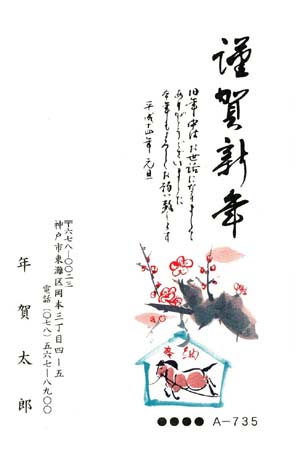 謹賀新年
旧年中はお世話になりまして
ありがとうございました
今年もよろしくお願い致します
平成十四年 元旦
〒六七八―〇〇一二三
神戸市東灘区岡本三丁目四―五
電話(〇七八)五六七―八九〇〇
年賀太郎
奉納
●●●● A-735